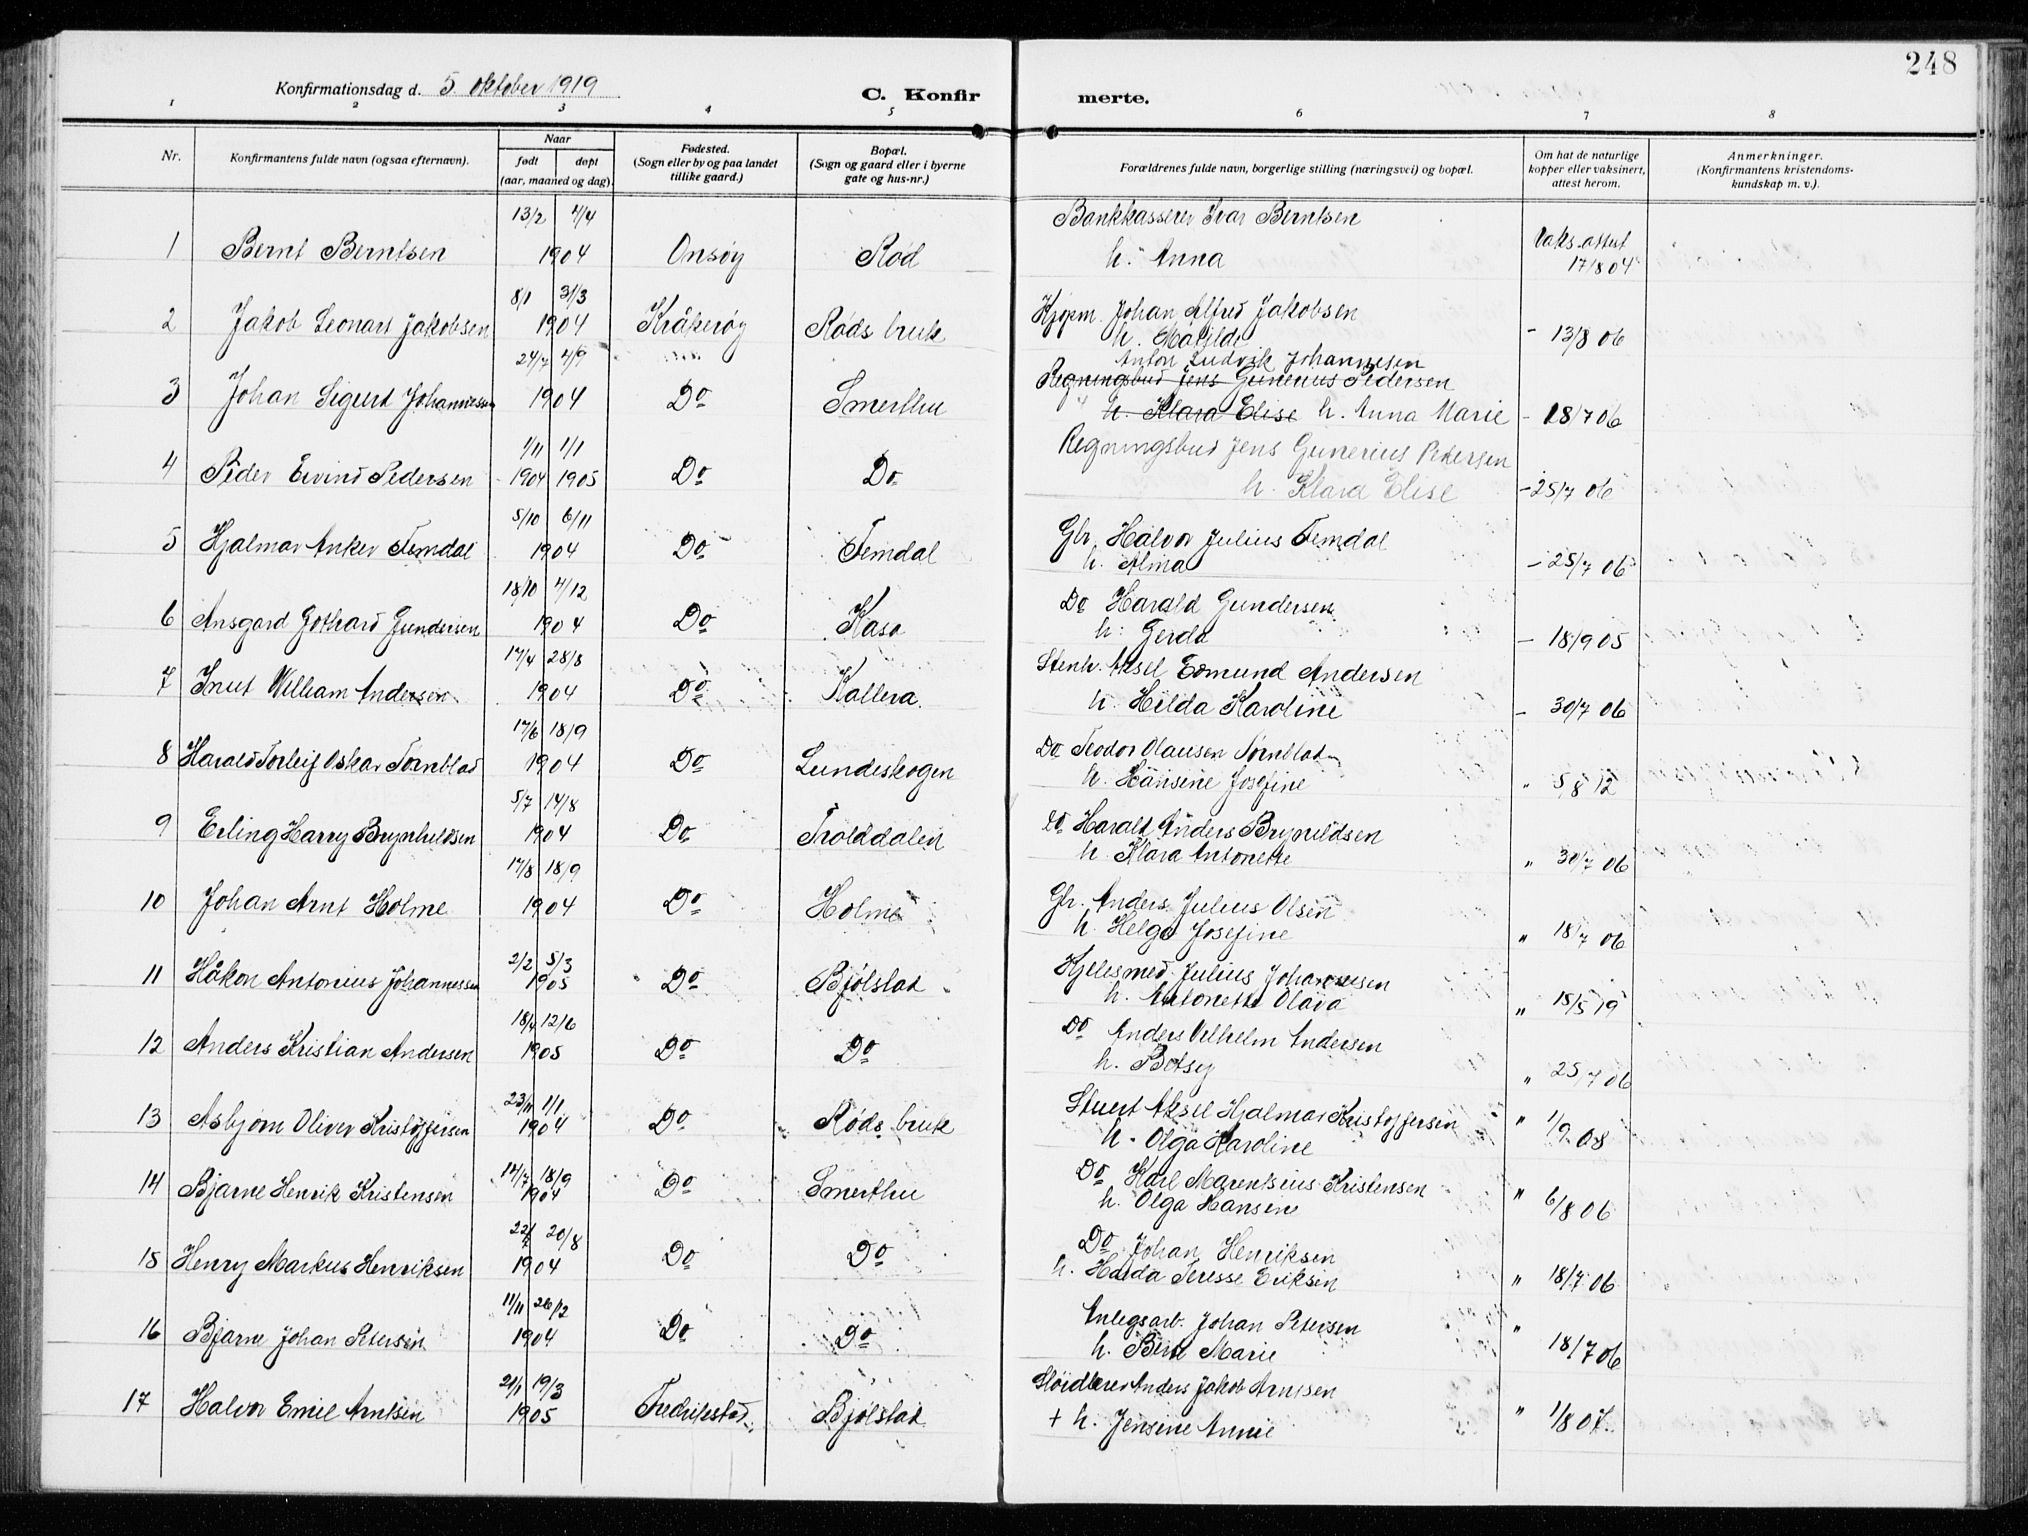 248
Konfirmationsdag d. 5 oktober 1919
C. Konfirmerte.
1 2 3 4 5 6 7 8
Nr.
Konfirmantens fulde navn (ogsaa efternavn).
Naar
født døpt
(aar, maaned og dag).
Fødested.
(Sogn eller by og paa landet
tillike gaard.)
Bopæl.
(Sogn og gaard eller i byerne
gate og hus-nr.)
Forældrenes fulde navn, borgerlige stilling (næringsvei) og bopæl.
Om hat de naturlige
kopper eller vaksinert,
attest herom.
Anmerkninger.
(Konfirmantens kristendoms-
kundskap m. v.).
13/2 4/4 Bankkasserer Ivar Berntsen
1 Bernt Berntsen 1904 Onsøy Rød h. Anna Vaks. attest 17/8 04
8/1 31/3
2 Jakob Leonart Jakobsen 1904 Kråkerøy Røds bruk Kjøpm. Johan Alfred Jakobsen
h. Matilde - 13/8 06
24/7 4/9 Anton Ludvik Johannesen
Regningsbud Jens Gunerius Pedersen
3 Johan Sigurd Johannessen 1904 Do Smerthu h. Klara Elise h. Anna Marie - 18/7 06
1/11 1/1 Regningsbud Jens Gunerius Petersen
4 Peder Eivind Pedersen 1904 1905 Do Do h. Klara Elise - 25/7 06
5/10 6/11
5 Hjalmar Anker Femdal 1904 Do Femdal Gbr. Halvor Julius Femdal
h. Alma - 25/7 06
18/10 4/12 Do Harald Gundersen
6 Ansgard Gothard Gundersen 1904 Do Kasa h. Gerda - 18/9 05
17/4 28/8 Stenh. Aksel Edmund Andersen
7 Knut William Andersen 1904 Do Kallera h. Hilda Karoline - 30/7 06
17/6 18/9 Do Teodor Olausen Tørnblad
8 Harald Torleif Oskar Tørnblad 1904 Do Lundeskogen h. Hansine Josefine " 5/8 12
5/7 14/8 Do Harald Anders Brynildsen
9 Erling Harry Brynhildsen 1904 Do Trolddalen h. Klara Antonette " 30/7 06
17/8 18/9
10 Johan Arnt Holme 1904 Do Holme Gbr. Anders Julius Olsen
h. Helga Josefine " 18/7 06
2/2 5/3
11 Håkon Antonius Johannessen 1905 Do Bjølstad Kjelesmed Julius Johannesen
h. Antonette Olava " 15/5 19
18/4 12/6 Do Anders Vilhelm Andersen
12 Anders Kristian Andersen 1905 Do Do h. Betsey " 25/7 06
23/11 1/1 Stuert Aksel Hjalmar Kristoffersen
13 Asbjørn Oliver Kristoffersen 1904 Do Røds bruk h. Olga Karoline " 1/9 08
14/7 18/9 Do Karl Marentsius Kristensen
14 Bjarne Henrik Kristensen 1904 Do Smerthu h. Olga Hansine " 6/8 06
22/7 20/8 Do Johan Henriksen
15 Henry Markus Henriksen 1904 Do Do h. Hulda Teresse Eriksen " 18/7 06
11/11 26/12 Anlegsarb. Johan Petersen
16 Bjarne Johan Petersen 1904 Do Do h. Berte Marie " 18/7 06
21/1 19/3 Sløidlærer Anders Jakob Arntsen
17 Halvor Emil Arntsen 1905 Fredrikstad Bjølstad + h. Jensine Annie " 1/8 07